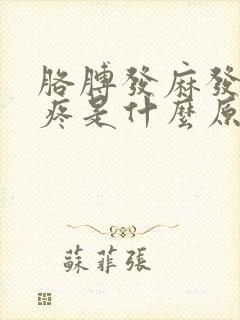 胳膊發麻發
疼是什麼原
蘇菲張